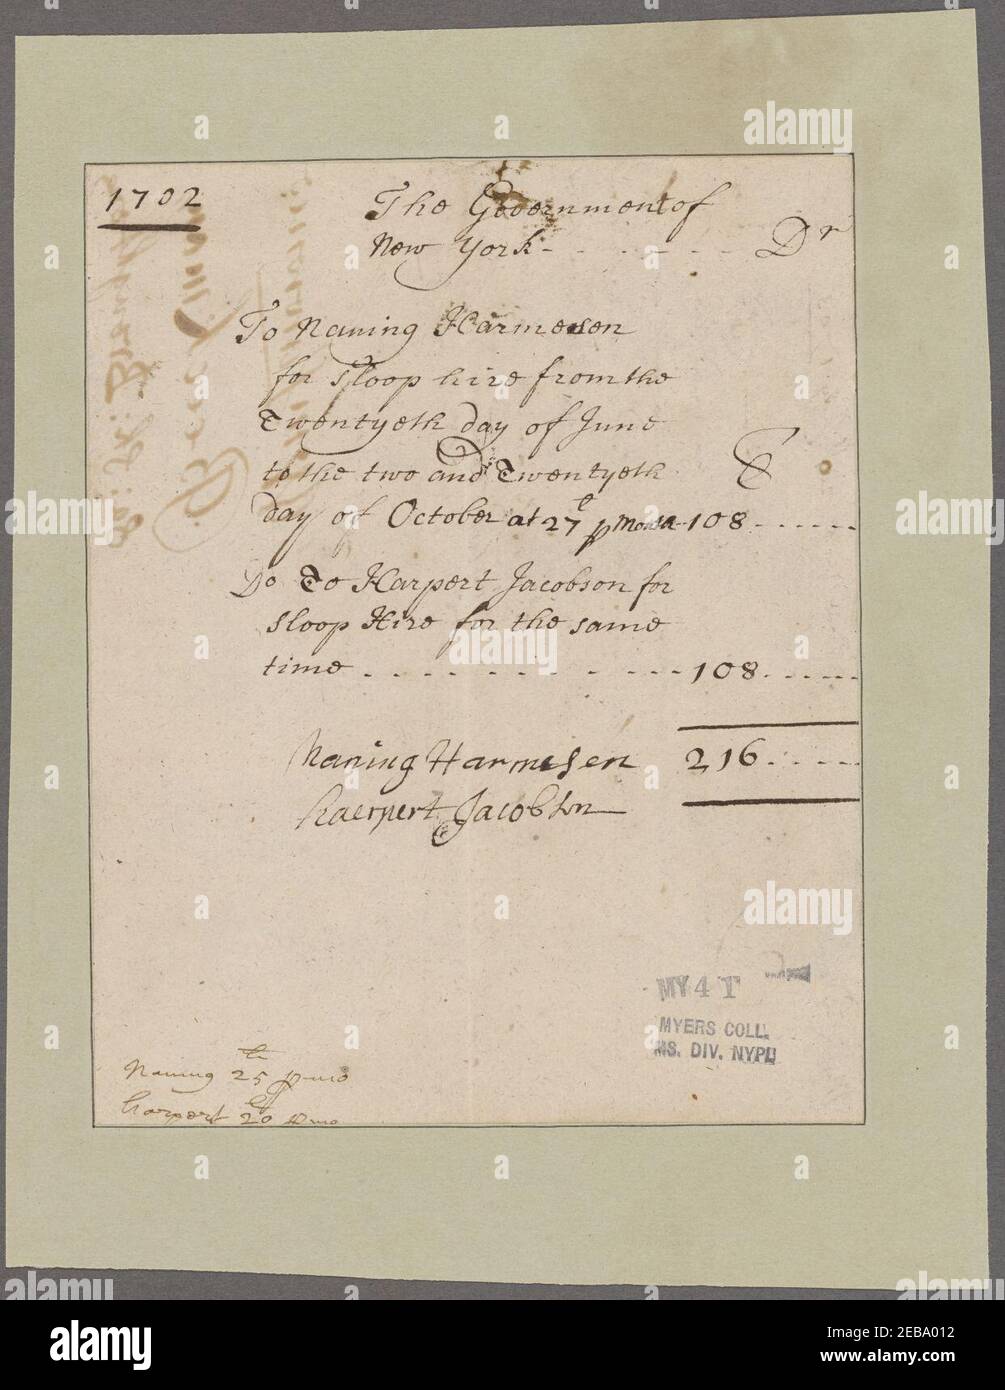 1702
The Government of
New York - - - - - - - Dr
To Naning Harmensen
for sloop hire from the
Twentyeth day of June
to the two and Twentyeth
day of October at 27 p Month 108 - - - - - -
Do To Harpert Jacobson for
sloop Hire for the same
time - - - - - - - - - - - 108 - - - - -
Naning Harmesen 216 - - - -
haerpert Jacobson
MY 4 T
MYERS COLL.
MS. DIV. NYPL
Naning 25 p mo
harpert 20 p mo
alamy
alamy
Image ID: 2EBA012
www.alamy.com